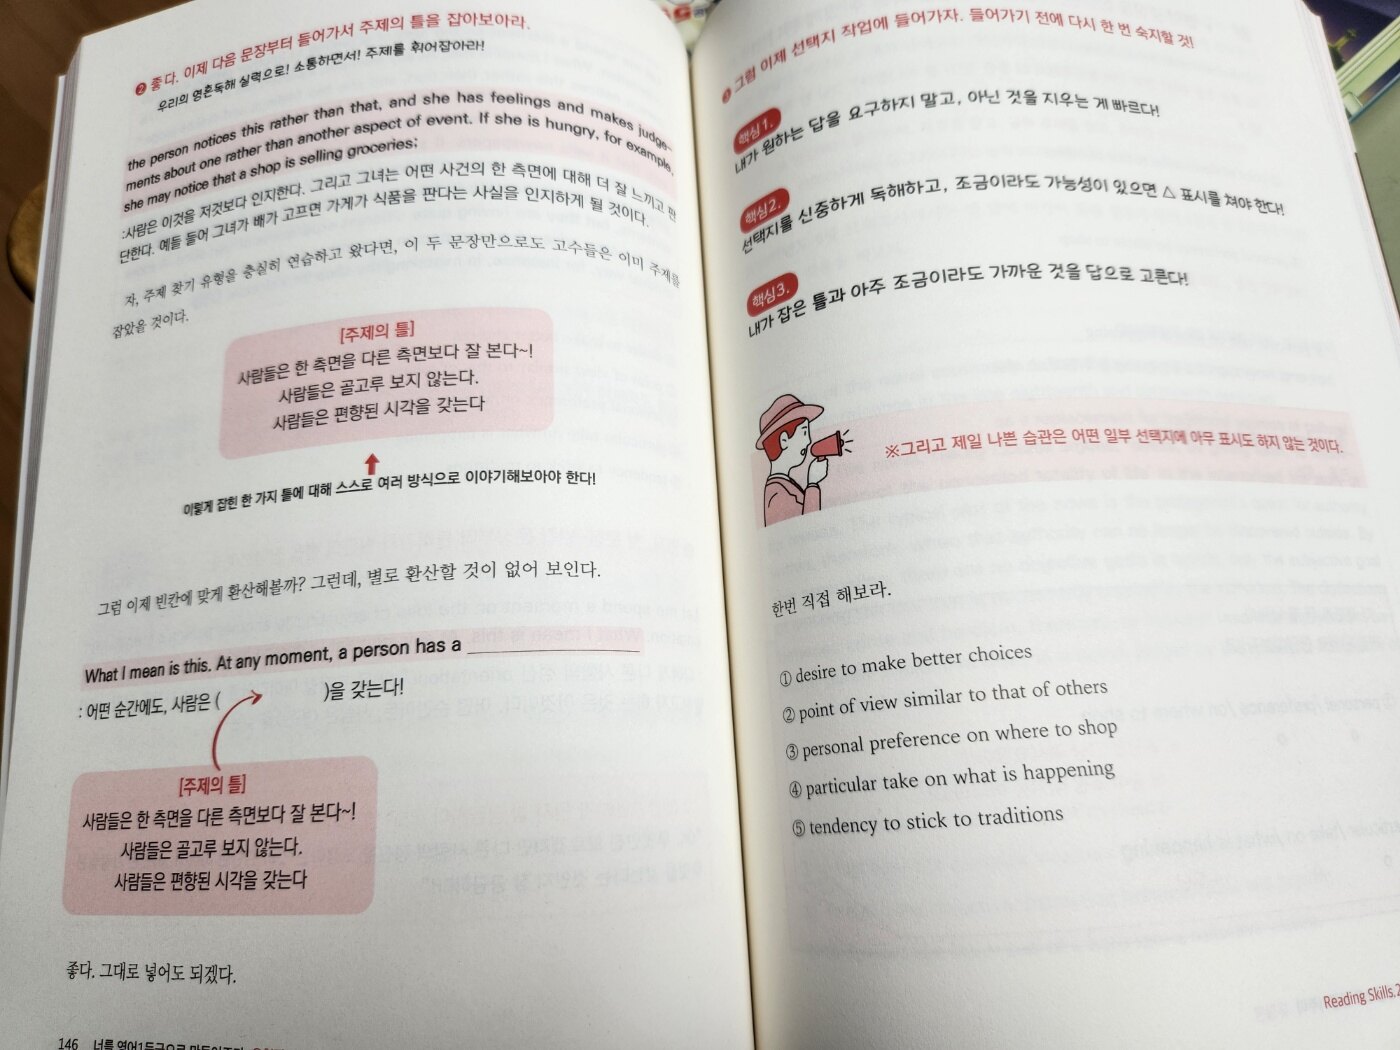 ❷ 좋다. 이제 다음 문장부터 들어가서 주제의 틀을 잡아보아라.
우리의 영혼독해 실력으로! 소통하면서! 주제를 휘어잡아라!
the person notices this rather than that, and she has feelings and makes judge-
ments about one rather than another aspect of event. If she is hungry, for example,
she may notice that a shop is selling groceries;
:사람은 이것을 저것보다 인지한다. 그리고 그녀는 어떤 사건의 한 측면에 대해 더 잘 느끼고 판
단한다. 예들 들어 그녀가 배가 고프면 가게가 식품을 판다는 사실을 인지하게 될 것이다.
자, 주제 찾기 유형을 충실히 연습하고 왔다면, 이 두 문장만으로도 고수들은 이미 주제를
잡았을 것이다.
[주제의 틀]
사람들은 한 측면을 다른 측면보다 잘 본다~!
사람들은 골고루 보지 않는다.
사람들은 편향된 시각을 갖는다
이렇게 잡힌 한 가지 틀에 대해 스스로 여러 방식으로 이야기해보아야 한다!
그럼 이제 빈칸에 맞게 환산해볼까? 그런데, 별로 환산할 것이 없어 보인다.
What I mean is this. At any moment, a person has a ____________
: 어떤 순간에도, 사람은 ( )을 갖는다!
[주제의 틀]
사람들은 한 측면을 다른 측면보다 잘 본다~!
사람들은 골고루 보지 않는다.
사람들은 편향된 시각을 갖는다
좋다. 그대로 넣어도 되겠다.
146
그럼 이제 선택지 작업에 들어가자. 들어가기 전에 다시 한 번 숙지할 것!
핵심1.
내가 원하는 답을 요구하지 말고, 아닌 것을 지우는 게 빠르다!
핵심2.
선택지를 신중하게 독해하고, 조금이라도 가능성이 있으면 △ 표시를 쳐야 한다!
핵심3.
내가 잡은 틀과 아주 조금이라도 가까운 것을 답으로 고른다!
※그리고 제일 나쁜 습관은 어떤 일부 선택지에 아무 표시도 하지 않는 것이다.
한번 직접 해보라.
① desire to make better choices
② point of view similar to that of others
③ personal preference on where to shop
④ particular take on what is happening
⑤ tendency to stick to traditions
Reading Skills.2